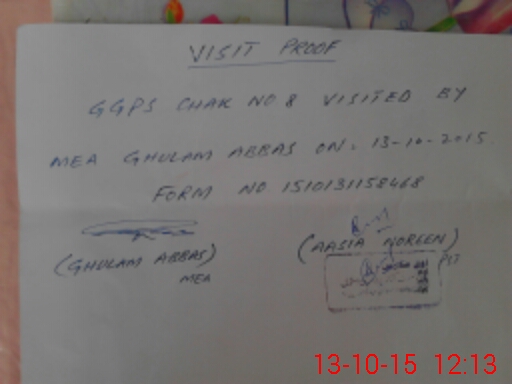 VISIT PROOF
GGPS CHAK NO 8 VISITED BY
MEA GHULAM ABBAS ON. 13-10-2015.
FORM NO 1510131158468
(GHULAM ABBAS)
MEA
(AASIA NOREEN)
PST
13-10-15 12:13